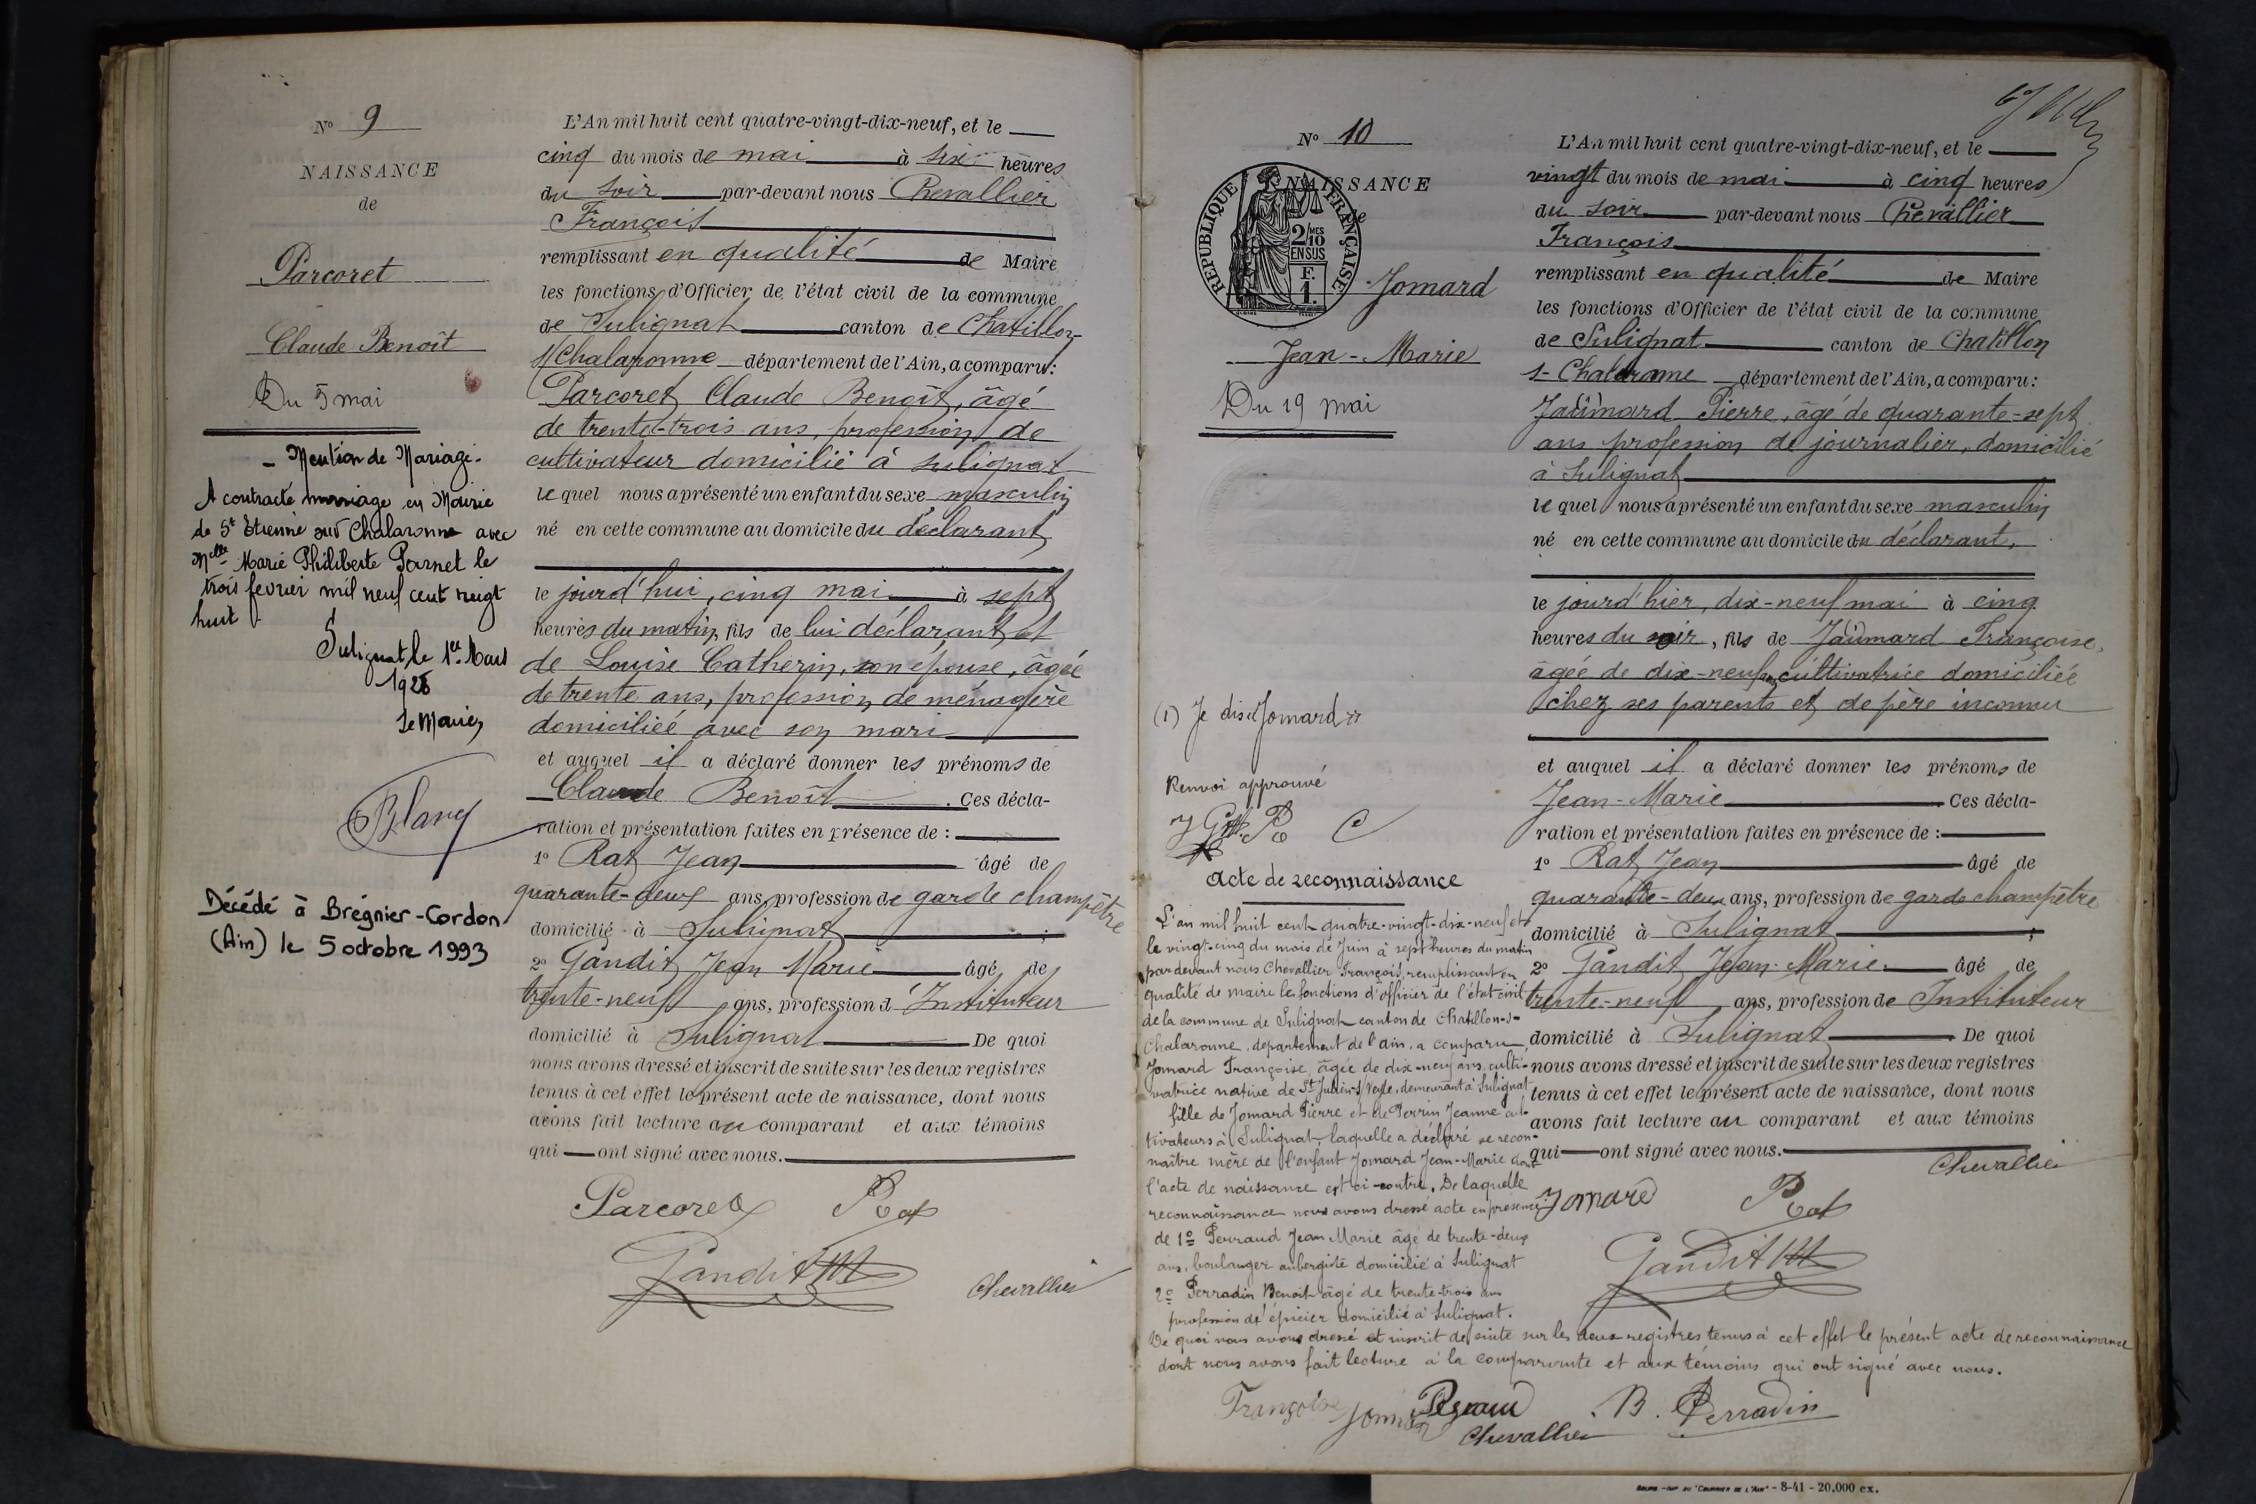 Nº 9
NAISSANCE
de
Parcoret
Claude Benoît
Du 5 mai
- Mention de Mariage -
A contracté mariage en Mairie
de St Etienne sur Chalaronne avec
Melle Marie Philiberte Parnet le
trois fevrier mil neuf cent vingt
huit
Sulignat, le 1er Mars
1928
Le Maire,
Blanc
Décédé à Brégnier-Cordon
(Ain) le 5 octobre 1993
L'An mil huit cent quatre-vingt-dix-neuf, et le
cinq du mois de mai à six heures
du soir par-devant nous Chevallier
François
remplissant en qualité de Maire
les fonctions d'Officier de l'état civil de la commune
de Sulignat canton de Chatillon-
s/Chalaronne département de l'Ain, a comparu:
Parcoret Claude Benoît, âgé
de trente-trois ans, profession de
cultivateur domicilié à Sulignat
le quel nous a présenté un enfant du sexe masculin
né en cette commune au domicile du déclarant,
le jourd'hui, cinq mai à sept
heures du matin, fils de lui déclarant et
de Louise Catherin, son épouse, âgée
de trente ans, profession de ménagère
domiciliée avec son mari
et auquel il a déclaré donner les prénoms de
Claude Benoît. Ces décla-
ration et présentation faites en présence de :
1º Rat Jean âgé de
quarante-deux ans, profession de garde champêtre
domicilié à Sulignat ;
2º Gandit Jean Marie âgé de
trente-neuf ans, profession d'Instituteur
domicilié à Sulignat De quoi
nous avons dressé et inscrit de suite sur les deux registres
tenus à cet effet le présent acte de naissance, dont nous
avons fait lecture au comparant et aux témoins
qui ont signé avec nous.
Parcoret Rat
Gandit JM
Chevallier
Nº 10
NAISSANCE
de
REPUBLIQUE FRANÇAISE
2/10 MES
EN SUS
F.
1.
Jomard
Jean-Marie
Du 19 mai
(1) Je dis "Jomard"
Renvoi approuvé
J G R C
Acte de reconnaissance
L'an mil huit cent quatre-vingt-dix-neuf et
le vingt-cinq du mois de Juin à sept heures du matin
par devant nous Chevallier François, remplissant en
qualité de maire les fonctions d'officier de l'état civil
de la commune de Sulignat canton de Chatillon-s-
Chalaronne, département de l'Ain, a comparu
Jomard Françoise, âgée de dix-neuf ans, culti-
vatrice native de St Julien s/ Veyle, demeurant à Sulignat
fille de Jomard Pierre et de Perrin Jeanne cul-
tivateurs à Sulignat, laquelle a déclaré se recon-
naître mère de l'enfant Jomard Jean-Marie dont
l'acte de naissance est ci-contre. De laquelle
reconnaissance nous avons dressé acte en présence
de 1º Perraud Jean Marie âgé de trente-deux
ans, boulanger aubergiste domicilié à Sulignat
2º Perradin Benoit âgé de trente-trois ans
profession d'épicier domicilié à Sulignat.
De quoi nous avons dressé et inscrit de suite sur les deux registres tenus à cet effet le présent acte de reconnaissance
dont nous avons fait lecture à la comparante et aux témoins qui ont signé avec nous.
Françoise Jomard Peraud B. Perradin
Chevallier
L'An mil huit cent quatre-vingt-dix-neuf, et le
vingt du mois de mai à cinq heures
du soir par-devant nous Chevallier
François
remplissant en qualité de Maire
les fonctions d'Officier de l'état civil de la commune
de Sulignat canton de Chatillon
s- Chalaronne département de l'Ain, a comparu:
Jaumard Pierre, âgé de quarante-sept
ans profession de journalier, domicilié
à Sulignat
le quel nous a présenté un enfant du sexe masculin
né en cette commune au domicile du déclarant,
le jourd'hier, dix-neuf mai à cinq
heures du soir, fils de Jaumard Françoise,
âgée de dix-neuf ans, cultivatrice domiciliée
chez ses parents et de père inconnu
et auquel il a déclaré donner les prénoms de
Jean-Marie Ces décla-
ration et présentation faites en présence de :
1º Rat Jean âgé de
quarante-deux ans, profession de garde champêtre
domicilié à Sulignat ;
2º Gandit Jean-Marie âgé de
trente-neuf ans, profession de Instituteur
domicilié à Sulignat De quoi
nous avons dressé et inscrit de suite sur les deux registres
tenus à cet effet le présent acte de naissance, dont nous
avons fait lecture au comparant et aux témoins
qui ont signé avec nous.
Chevallier
Jomard Rat
Gandit JM
BOURG - IMP. DU "COURRIER DE L'AIN" - 8-41 - 20.000 ex.